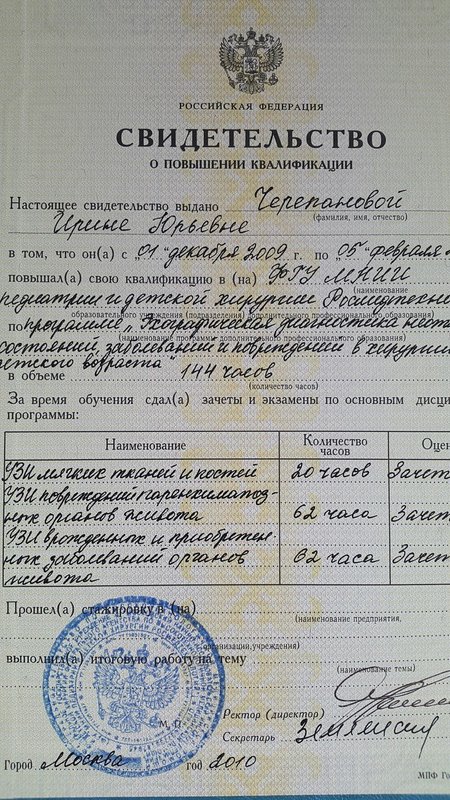 РОССИЙСКАЯ ФЕДЕРАЦИЯ
СВИДЕТЕЛЬСТВО
О ПОВЫШЕНИИ КВАЛИФИКАЦИИ
Настоящее свидетельство выдано Черепановой
(фамилия, имя, отчество)
Ирине Юрьевне
в том, что он(а) с "01" декабря 2009 г. по "05" февраля
повышал(а) свою квалификацию в (на) ФГУ МНИИ
(наименование
педиатрии и детской хирургии
образовательного учреждения (подразделения) дополнительного профессионального образования)
по программе "Эхографическая диагностика неот
(наименование программы дополнительного профессионального образования)
состояний, заболеваний и повреждений в хирургии
детского возраста"
в объеме 144 часов
(количество часов)
За время обучения сдал(а) зачеты и экзамены по основным дисци
программы:
Наименование Количество часов Оцен
УЗИ мягких тканей и костей 20 часов Зачет
УЗИ повреждений паренхиматоз-
ных органов живота 62 часа Зачет
УЗИ врожденных и приобретен-
ных заболеваний органов 62 часа Зачет
живота
Прошел(а) стажировку в (на)
(наименование предприятия,
организации, учреждения)
выполнил(а) итоговую работу на тему
(наименование темы)
М. П.
Ректор (директор)
Секретарь
Город Москва год 2010
МПФ Го